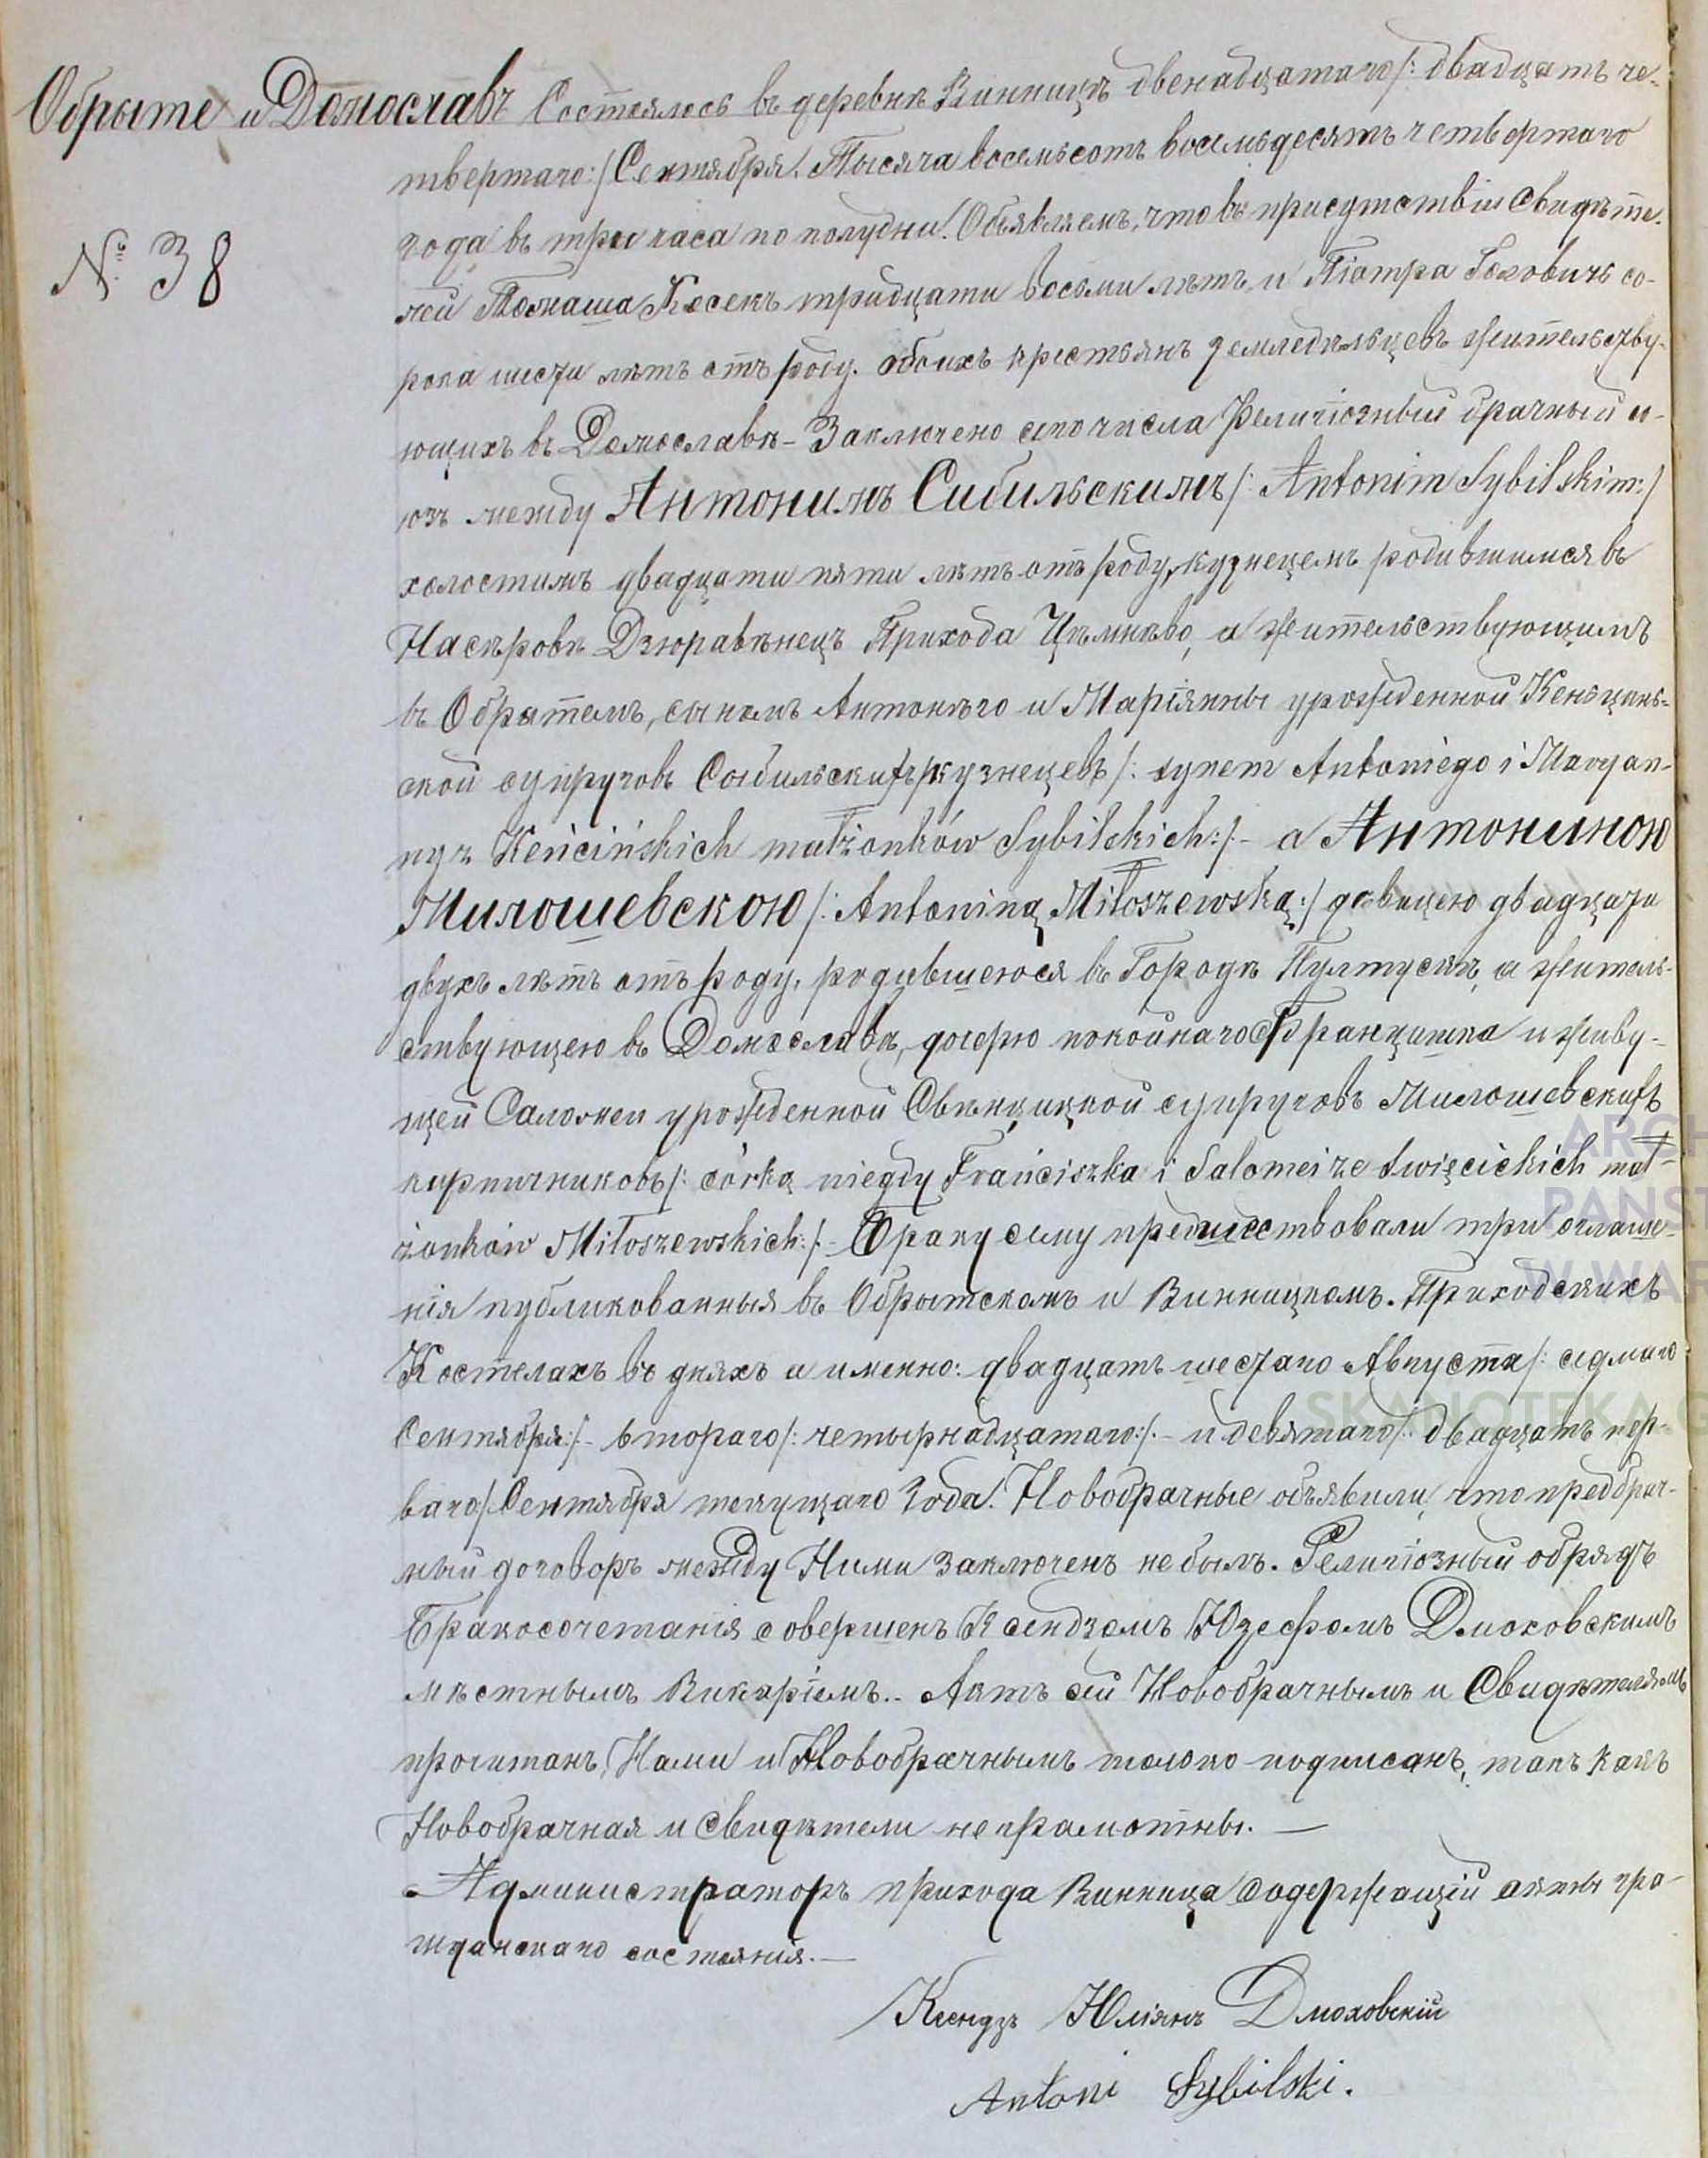 Обрыте и Домославъ Состоялось въ деревнѣ Винницѣ двенадцатаго /: двадцать че-
твертаго :/ Сентября. Тысяча восемьсотъ восемьдесятъ четвертаго
№ 38
года въ три часа по полудни. Объявляемъ, что въ присутствіи Свидѣте-
лей Томаша Косекъ тридцати восьми лѣтъ, и Піотра со-
рока шести лѣтъ отъ роду. обоихъ крестьянъ земледѣльцевъ жительству-
ющихъ въ Домославѣ - Заключено сего числа Религіозный брачный со-
юзъ между Антонимъ Сибильскимъ /: Antonim Sybilskim :/
холостимъ двадцати пяти лѣтъ отъ роду, кузнецемъ родившимся въ
Насѣровѣ Дзюравѣнецъ Прихода Цѣмнѣво, а жительствующимъ
въ Обрытемъ, сыномъ Антонѣго и Маріянны урожденной Кеньцинь-
ской супруговъ Сыбильскихъ кузнецевъ /: synem Antoniego i Maryan-
ny z Keńcińskich małżonków Sybilskich :/ - а Антониною
Милошевскою /: Antoniną Miłoszewską :/ дѣвицею двадцати
двухъ лѣтъ отъ роду, родившеюся въ Городѣ Пултускѣ, а житель-
ствующею въ Домославѣ, дочерю покойнаго Францишка и живу-
щей Саломеи урожденной Свѣнцицкой супруговъ Милошевскихъ
кирпичниковъ /: córką niegdy Franciszka i Salomei ze Święcickich mał-
żonków Miłoszewskich :/ - Браку сему предшествовали три оглаше-
нія публикованныя въ Обрытскомъ и Винницкомъ. Приходскихъ
Костелахъ въ дняхъ а именно: двадцать шестаго Августа /: седмаго
Сентября :/ - втораго /: четырнадцатаго :/ - и девятаго /: двадцать пер-
ваго :/ Сентября текущаго Года. Новобрачные объявили, что предбрач-
ный договоръ между Ними заключенъ не былъ. Религіозный обрядъ
Бракосочетанія совершенъ Ксендзомъ Юзефомъ Дмоховскимъ
мѣстнымъ Викаріемъ. - Актъ сей Новобрачнымъ и Свидѣтелямъ
прочитанъ, Нами и Новобрачнымъ толоко подписанъ, такъ какъ
Новобрачная и свидѣтели неграмотны. —
Администраторъ прихода Винница Содержащій акты гра-
жданскаго состоянія. —
Ксендзъ Юліянъ Дмоховскій
Antoni Sybilski.